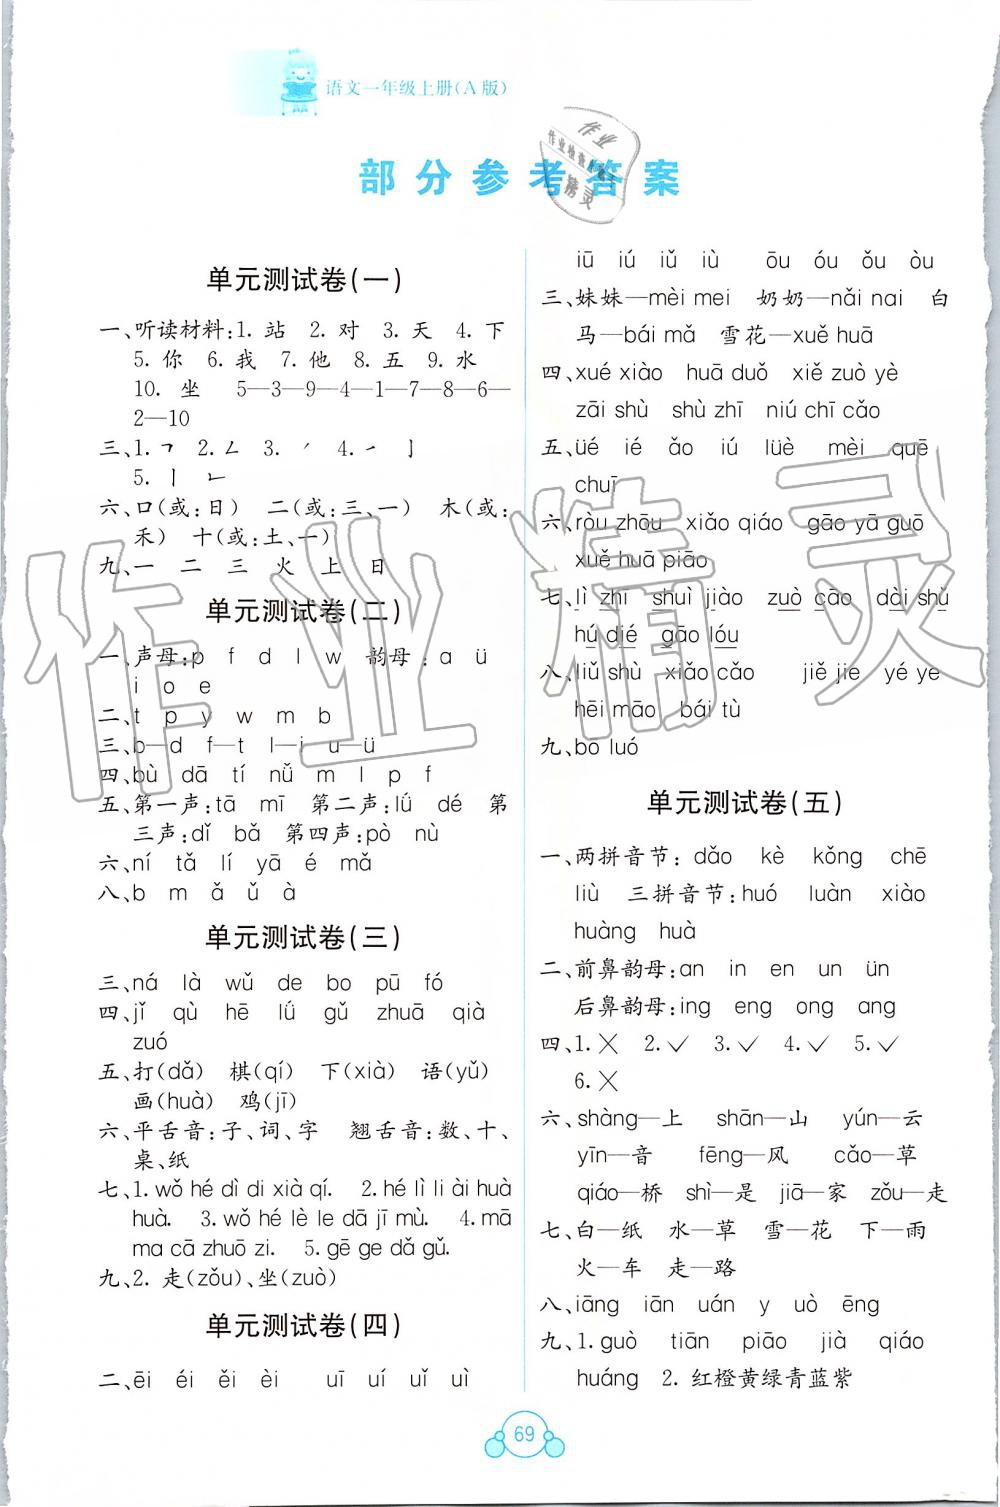 语文一年级上册(A版)
部分参考答案
单元测试卷(一)
一、听读材料:1. 站 2. 对 3. 天 4. 下
5. 你 6. 我 7. 他 8. 五 9. 水
10. 坐 5—3—9—4—1—7—8—6—
2—10
三、1. ㇕ 2. ㄥ 3. ㇒ 4. ㇀ 亅
5. 丨 ㇗
六、口(或:日) 二(或:三、一) 木(或:
禾) 十(或:土、一)
九、一 二 三 火 上 日
单元测试卷(二)
一、声母:p f d l w 韵母:a ü
i o e
二、t p y w m b
三、b—d f—t l—i u—ü
四、bù dā tí nǚ m l p f
五、第一声:tā mī 第二声:lǘ dé 第
三声:dǐ bǎ 第四声:pò nù
六、ní tǎ lí yā é mǎ
八、b m ǎ ǔ à
单元测试卷(三)
三、ná là wǔ de bo pū fó
四、jǐ qù hē lǘ gǔ zhuā qià
zuó
五、打(dǎ) 棋(qí) 下(xià) 语(yǔ)
画(huà) 鸡(jī)
六、平舌音:子、词、字 翘舌音:数、十、
桌、纸
七、1. wǒ hé dì di xià qí. 2. hé lì li ài huà
huà. 3. wǒ hé lè le dā jī mù. 4. mā
ma cā zhuō zi. 5. gē ge dǎ gǔ.
九、2. 走(zǒu)、坐(zuò)
单元测试卷(四)
二、ēi éi ěi èi uī uí uǐ uì
iū iú iǔ iù ōu óu ǒu òu
三、妹妹—mèi mei 奶奶—nǎi nai 白
马—bái mǎ 雪花—xuě huā
四、xué xiào huā duǒ xiě zuò yè
zāi shù shù zhī niú chī cǎo
五、üé ié ǎo iú lüè mèi quē
chuī
六、ròu zhōu xiǎo qiáo gāo yā guō
xuě huā piāo
七、lì zhi shuì jiào zuò cāo dài shù
hú dié gāo lóu
八、liǔ shù xiǎo cǎo jiě jie yé ye
hēi māo bái tù
九、bo luó
单元测试卷(五)
一、两拼音节: dǎo kè kǒng chē
liù 三拼音节:huó luàn xiào
huàng huà
二、前鼻韵母:an in en un ün
后鼻韵母:ing eng ong ang
四、1.✕ 2.✓ 3.✓ 4.✓ 5.✓
6.✕
六、shàng—上 shān—山 yún—云
yīn—音 fēng—风 cǎo—草
qiáo—桥 shì—是 jiā—家 zǒu—走
七、白—纸 水—草 雪—花 下—雨
火—车 走—路
八、iāng iān uán y uò ēng
九、1. guò tiān piāo jià qiáo
huáng 2. 红橙黄绿青蓝紫
69
作业精灵